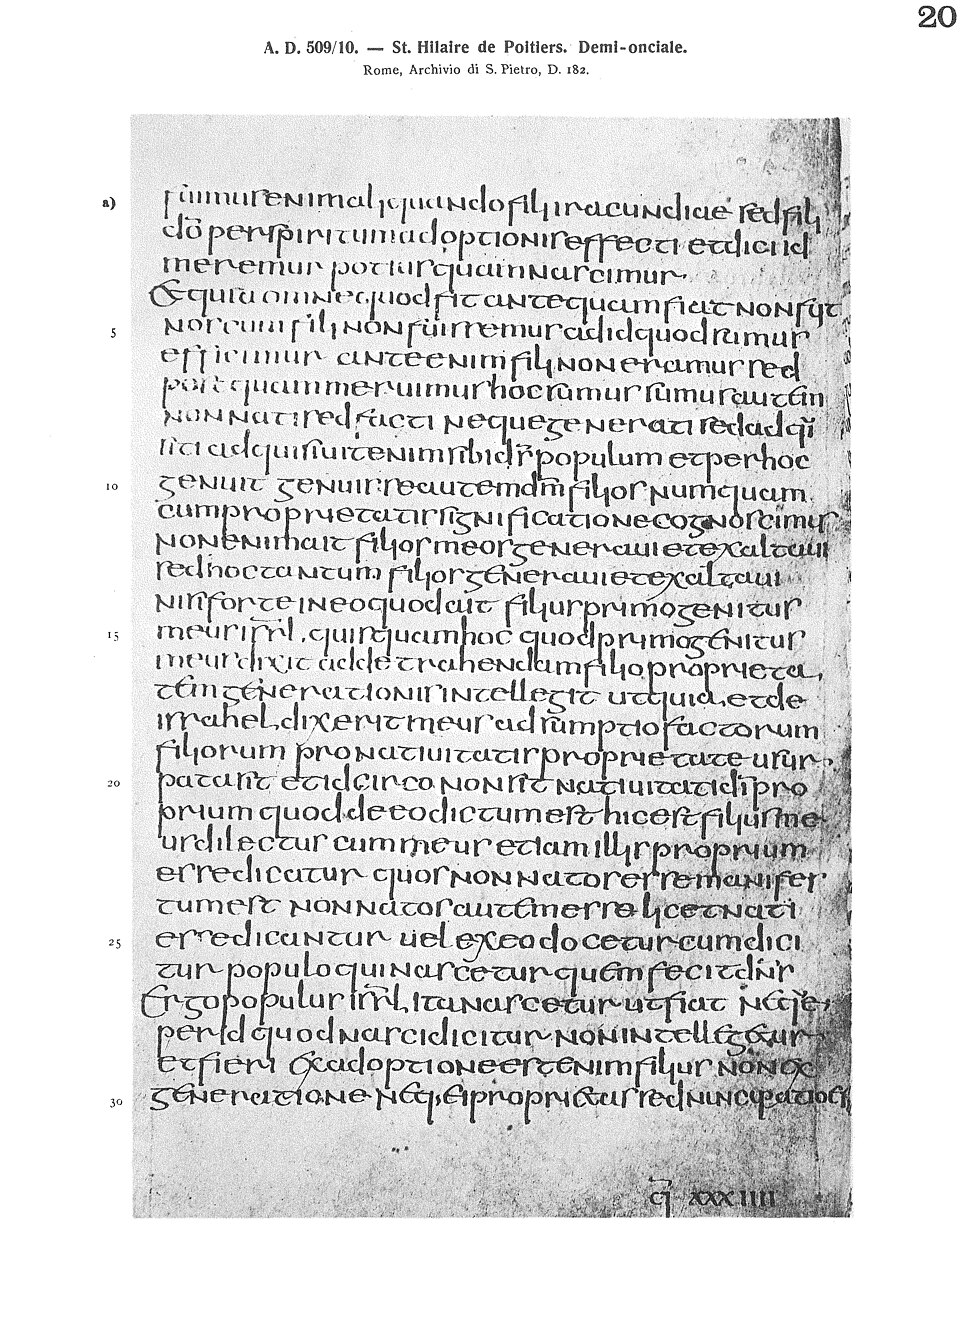 20
A. D. 509/10. — St. Hilaire de Poitiers. Demi-onciale.
Rome, Archivio di S. Pietro, D. 182.
a)
fuimus enim aliquando filii iracundiae sed filii
dō per spiritum adoptionis effecti et dici id
meremur potius quam nascimur
Et quia omne quod fit antequam fiat non fuit
5
nos cum filii non fuissemus ad id quod sumus
efficimur ante enim filii non eramus sed
postquam meruimus hoc sumus sumus autem
non nati sed facti neque generati sed adqui
siti adquisiuit enim sibi dš populum et per hoc
10
genuit genuisse autem dnm filios numquam
cum proprietatis significatione cognoscimus
non enim ait filios meos generaui et exaltaui
sed hoc tantum filios generaui et exaltaui
nisi forte in eo quod ait filius primogenitus
15
meus isrl quisquam hoc quod primogenitus
meus dixit ad detrahendam filio proprieta
tem generationis intellegit ut quia et de
israhel dixerit meus adsumptio factorum
filiorum pro natiuitatis proprietate usur
20
pata sit et idcirco non sit natiuitati dī pro
prium quod de eo dictum est hic est filius me
us dilectus cum meus etiam illis proprium
esse dicatur quos non natos esse manifes
tum est non natos autem esse licet nati
25
esse dicantur uel ex eo docetur cum dici
tur populo qui nascetur quem fecit dns
Ergo populus isrl ita nascetur ut fiat neque
per id quod nasci dicitur non intellegetur
et fieri ex adoptione est enim filius non ex
30
generatione neque ei proprietas sed nuncupatio est
q XXXIIII